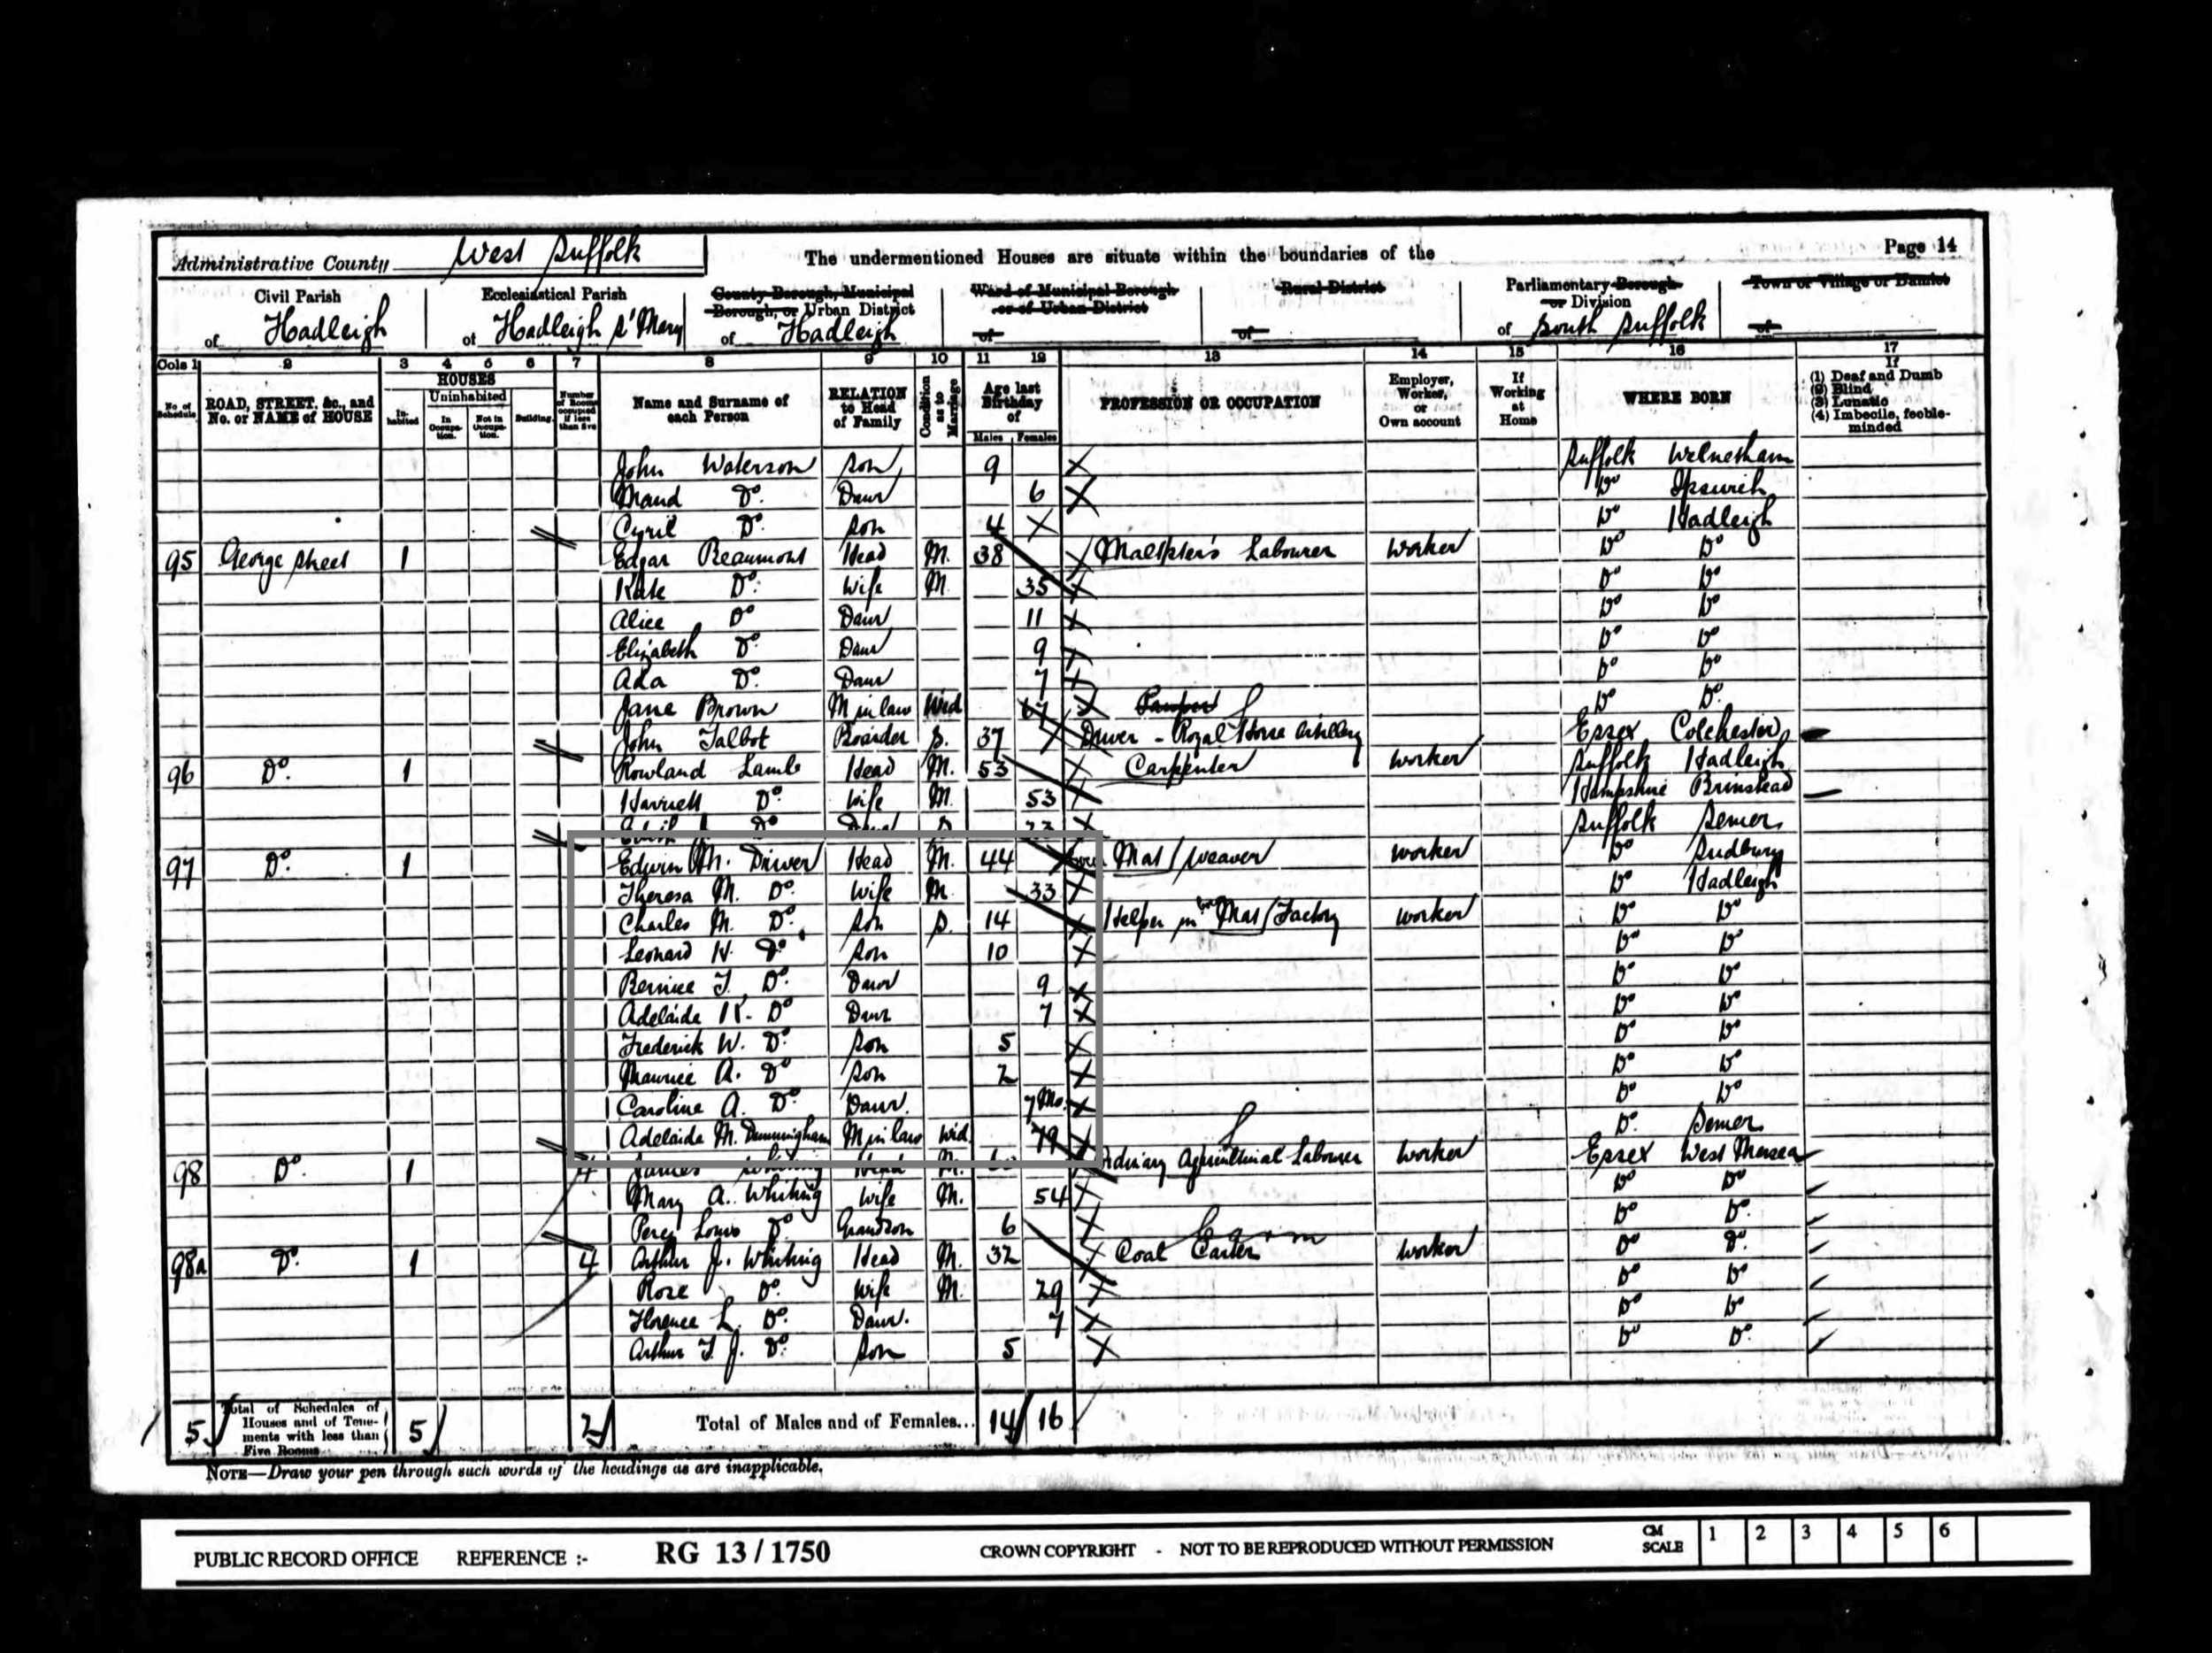 Administrative County West Suffolk The undermentioned Houses are situate within the boundaries of the Page 14
Civil Parish of Hadleigh
Ecclesiastical Parish of Hadleigh St Mary
County Borough, Municipal Borough, or Urban District of Hadleigh
Ward of Municipal Borough or of Urban District of
Rural District of
Parliamentary Borough or Division of South Suffolk
Town or Village or Hamlet of
Cols 1 2 3 4 5 6 7 8 9 10 11 12 13 14 15 16 17
No. of Schedule
ROAD, STREET, &c., and No. or NAME of HOUSE
HOUSES
Inhabited
Uninhabited
In Occupation.
Not in Occupation.
Building.
Number of Rooms occupied if less than five
Name and Surname of each Person
RELATION to Head of Family
Condition as to Marriage
Age last Birthday of
Males Females
PROFESSION OR OCCUPATION
Employer, Worker, or Own account
If Working at Home
WHERE BORN
If
(1) Deaf and Dumb
(2) Blind
(3) Lunatic
(4) Imbecile, feeble-minded
John Waterson Son 9 Suffolk Witnesham
Maud Do. Daur 6 Do Ipswich
Cyril Do. Son 4 Do Hadleigh
95 George Street 1 Edgar Beaumont Head M. 38 Maltster's Labourer Worker Do Do
Kate Do. Wife M. 35 Do Do
Alice Do Daur 11 Do Do
Elizabeth Do. Daur 9 Do Do
Ada Do. Daur 7 Do Do
Jane Brown M in law Wid 67 Pauper Do Do.
John Talbot Boarder S. 37 Driver - Royal Horse Artillery Essex Colchester
96 Do. 1 Rowland Lamb Head M. 53 Carpenter Worker Suffolk Hadleigh
Harriett Do. Wife M. 53 Hampshire Brinstead
Do Daur S 23 Suffolk Semer
97 Do. 1 Edwin M. Driver Head M. 44 Mat Weaver Worker Do Sudbury
Theresa M. Do. Wife M. 33 Do Hadleigh
Charles M. Do. Son S. 14 Helper in Mat Factory Worker Do Do
Leonard H. Do Son 10 Do Do
Bernice T. Do. Daur 9 Do Do
Adelaide K. Do Daur 7 Do Do
Frederick W. Do. Son 5 Do Do
Maurice A. Do Son 2 Do Do
Caroline A. Do. Daur. 7 Mo. Do Do
Adelaide M. Dunningham M in law Wid 79 Do. Semer
98 Do. 1 4 James Whiting Head M. Ordinary Agricultural Labourer Worker Essex West Mersea
Mary A. Whiting Wife M. 54 Do Do
Percy Louis Do Grandson 6 Do Do.
98a Do. 1 4 Arthur J. Whiting Head M. 32 Coal Carter Worker Do Do.
Rose Do. Wife M. 29 Do Do
Florence L. Do. Daur. 7 Do Do
Arthur T. J. Do. Son 5 Do Do.
5 Total of Schedules of Houses and of Tenements with less than Five Rooms 5 2 Total of Males and of Females... 14 16
NOTE—Draw your pen through such words of the headings as are inapplicable.
PUBLIC RECORD OFFICE REFERENCE :- RG 13 / 1750 CROWN COPYRIGHT - NOT TO BE REPRODUCED WITHOUT PERMISSION CM SCALE 1 2 3 4 5 6